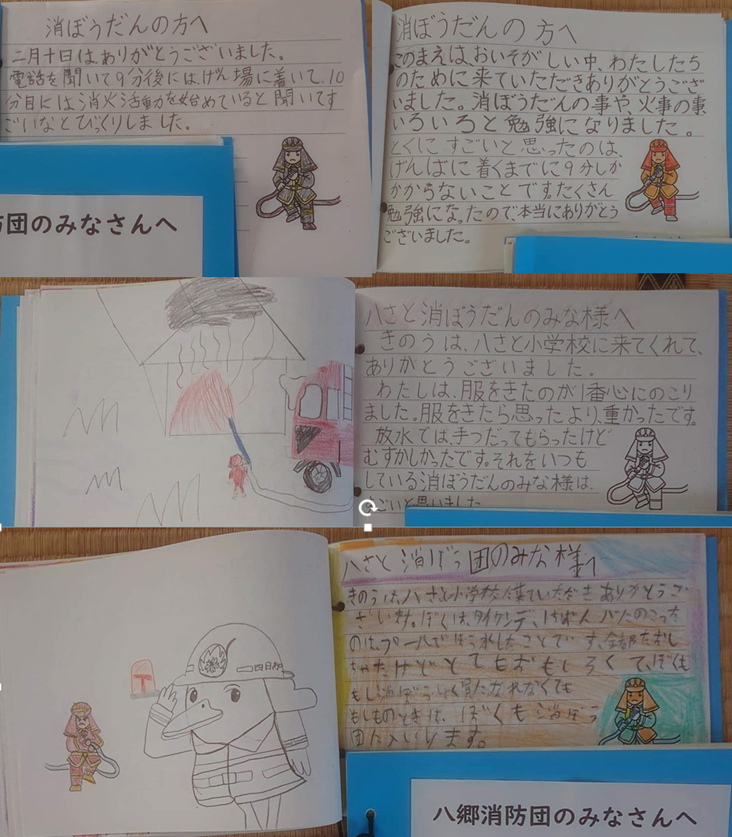 消ぼうだんの方へ
二月十日はありがとうございました。
電話を聞いて9分後にはげん場に着いて、10
分目には、消火活動を始めていると聞いてす
ごいなとびっくりしました。
防団のみなさんへ
消ぼうだんの方へ
このまえは、おいそがしい中、わたしたち
のために来ていただきありがとうござ
いました。消ぼうだんの事や、火事の事
いろいろと勉強になりました。
とくにすごいと思ったのは、
げんばに着くまでに9分しか
かからないことです。たくさん
勉強になったので本当にありがとう
ございました。
八さと消ぼうだんのみな様へ
きのうは、八さと小学校に来てくれて、
ありがとうございました。
わたしは、服をきたのが1番心にのこり
ました。服をきたら思ったより、重かったです。
放水では、手つだってもらったけど
むずかしかったです。それをいつも
している消ぼうだんのみな様は、
すごいと思いました
四日市
八さと消ぼう団のみな様へ
きのうは、八さと小学校に来ていただきありがとうご
ざいます。ぼくは、タイケンデ、いちばん
のは、プールでほう水したことです。全部たおし
ちゃたけどとてもおもしろくて、ぼくも
もし消ぼう
もしものときは、ぼくも消ぼう
団に入いります。
八郷消防団のみなさんへ